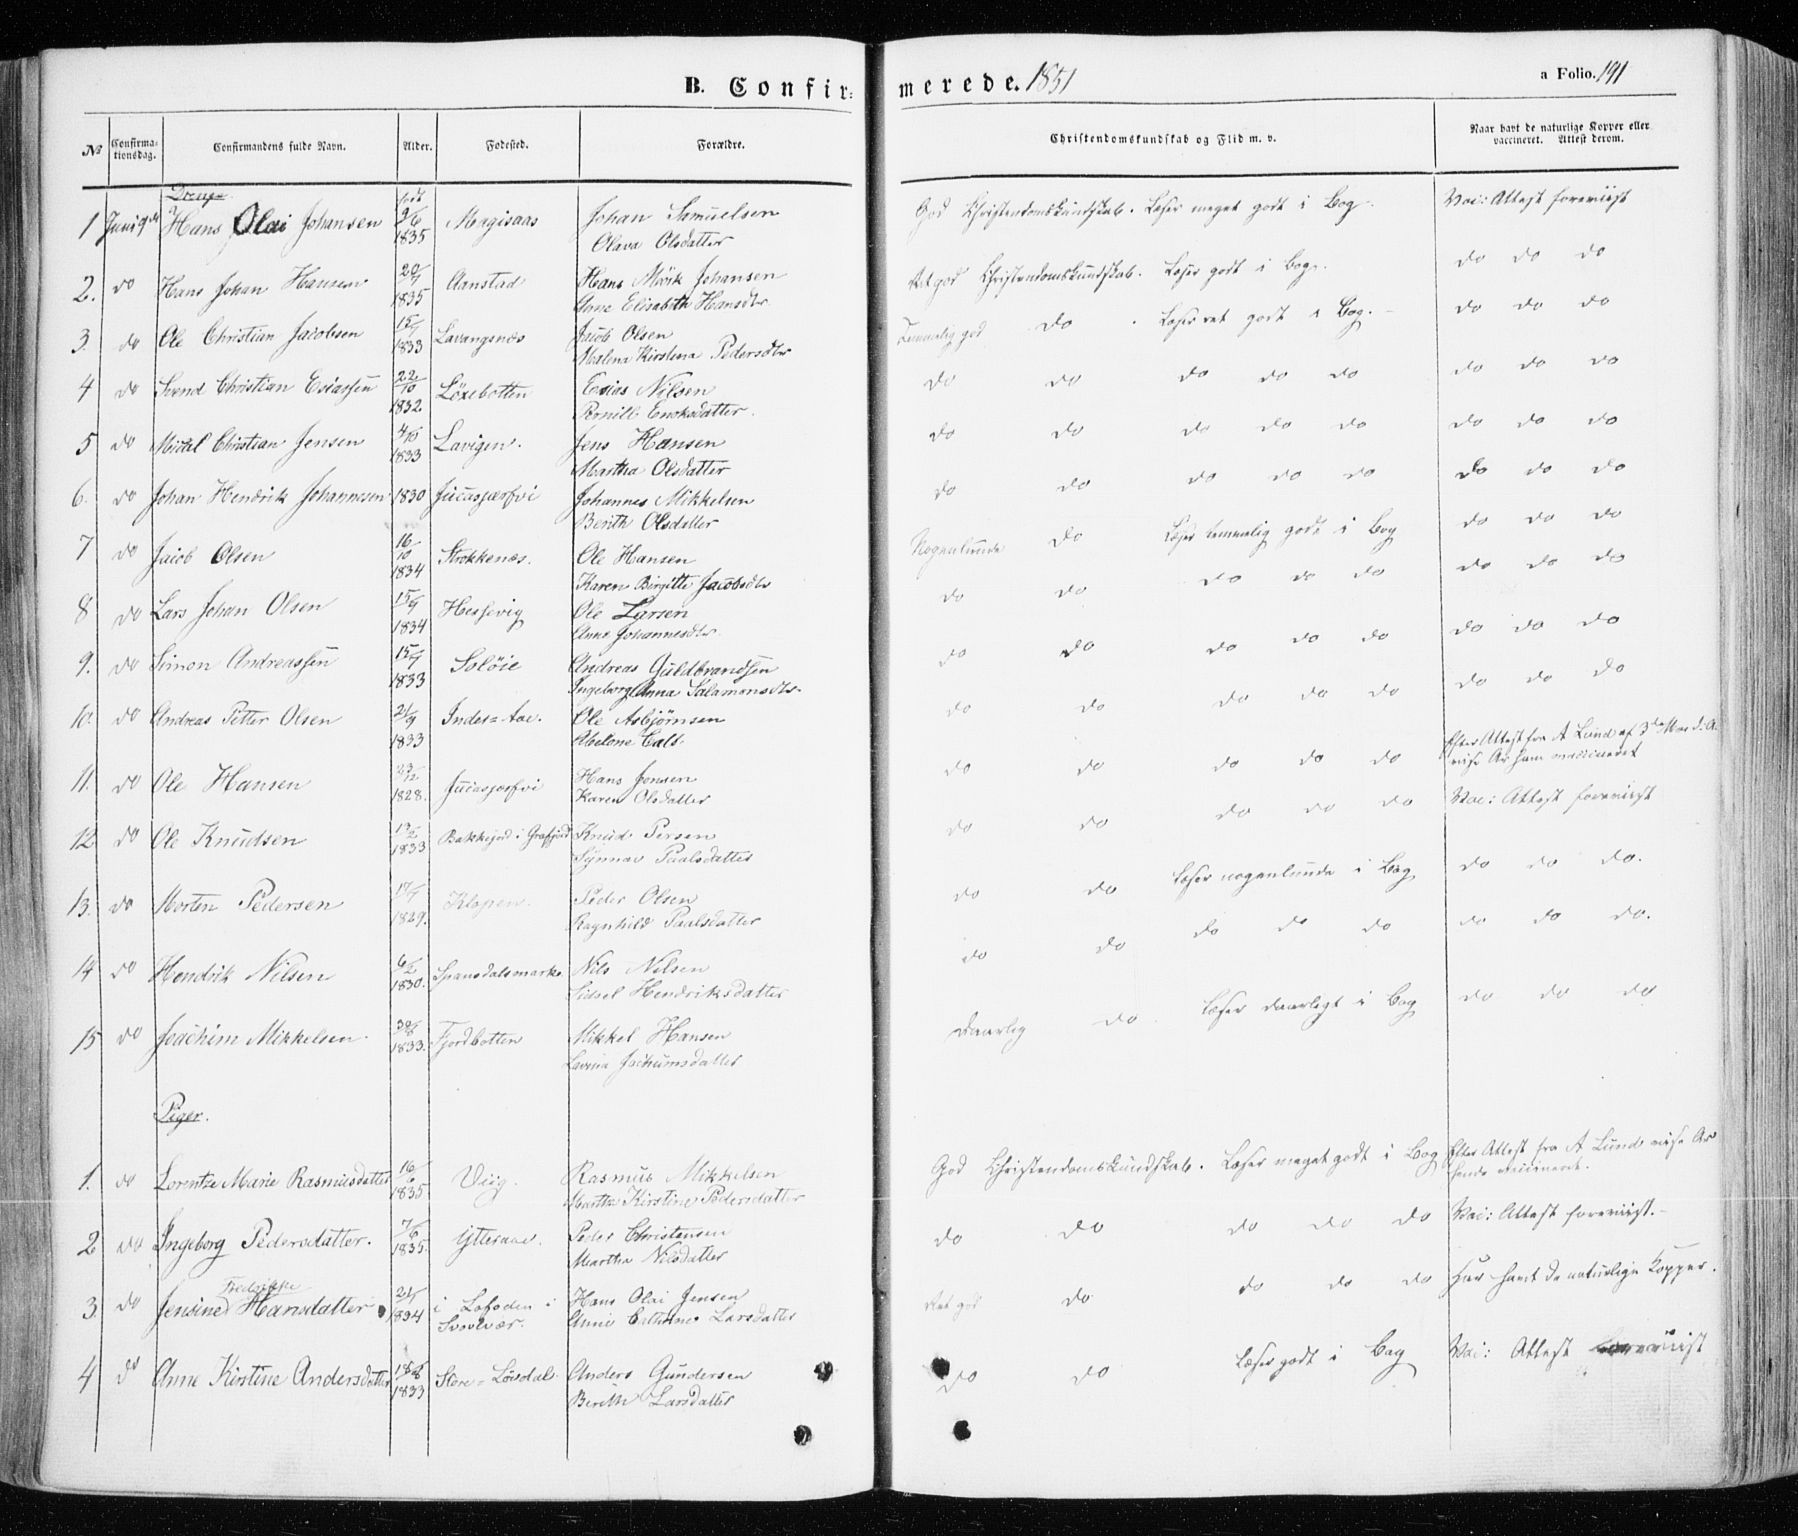 B. Confirmerede. 1851
a Folio. 191
No Confirmationsdag. Confirmandens fulde Navn. Alder. Fodested. Forældre. Christendomskundskab og Flid m. v. Naar havt de naturlige Kopper eller vaccineret. Attest derom.
Drenge
1 Juni Hans Olai Johansen 9/6 1835 Magisaas Johan Samuelsen God Christendomskundskab. Læser meget godt i Bog. Vac: Attest foreviist
Olava Olsdatter
2. do Hans Johan Hansen 20/7 1835 Aanstad Hans Mörk Johansen Ret god Christendomskundskab. Læser godt i Bog. do do do
Anne Elisabeth Hansdtr
3. do Ole Christian Jacobsen 15/7 1833 Lavangsnæs Jacob Olsen Temmelig god do. Læser ret godt i Bog. do do do
Malena Kirstina Pedersdtr
4 do Svend Christian Esiassen 22/10 1832 Löxebotten Esias Nilsen do do do do do do do do
Pernille Enoksdatter.
5 do Mikal Christian Jensen 4/10 1833 Lavigen. Jens Hansen do do do do do do do do
Martha Olsdatter
6. do Johan Hendrik Johannesen 1830 Jucasjærfvi Johannes Mikkelsen do do do do do do do do
Berith Olsdatter
7 do Jacob Olsen 16/10 1834 Strokkenæs. Ole Hansen Nogenlunde do Læser temmelig godt i Bog do do do
Karen Birgitte Jacobsdtr
8 do Lars Johan Olsen 15/9 1834 Hessevig Ole Larsen do do do do do do do do
Anne Johannesdtr.
9. do Simon Andreassen 15/7 1833 Solöie Andreas Guldbrandsen do do do do do do do do
Ingeborg Anna Salamonsdtr.
10. do Andreas Petter Olsen 21/9 1833 Indes=Aae. Ole Asbjörnsen do do do do do do do do
Abelone
11. do Ole Hansen 23/12 1828. Jucasjærfvi Hans Jonsen do do do do do Efter Attest fra A Lund af 3de Mai d. A.
Karen Olsdatter vise Ar ham vaccineret
12 do Ole Knudsen 13/2 1833 Bakkejord i Gratfjord Knud Persen do do do do do Vac: Attest foreviist
Synnav Paalsdatter
13. do Morten Pedersen 17/7 1829. Klopen. Peder Olsen do do Læser nogenlunde i Bog do do do.
Ragnhild Paalsdatter
14 do Hendrik Nilsen 6/2 1830. Spansdalsmark. Nils Nilsen do do do do do do do do.
Sidsel Hendriksdatter
15 do Joachim Mikkelsen. 30/6 1833. Fjordbotten Mikkel Hansen Daarlig do. Læser daarligt i Bog do do do
Lavina Jochumsdatter
Piger.
1. do Lorentze Marie Rasmusdatter 16/6 1835 Viig. Rasmus Mikkelsen God Christendomskundskab. Læser meget godt i Bog Efter Attest fra A Lund vise Ar
Martha Kirstine Pedersdatter hende vaccineret.
2 do Ingeborg Pedersdatter. 7/6 1835. Ytteraae. Peder Christensen do do do do do Vac: Attest foreviist.
Martha Nilsdatter
Fredrikke
3. do Jensine Hansdatter 21/7 1834 i Lofoden i Hans Olai Jensen Ret god do do do do Har havt de naturlige Kopper.
Svovær. Anne Cathrine Larsdatter
4 do Anne Kirstine Andersdatter 1833 Store=Lövdal. Anders Gundersen do do Læser godt i Bog Vac: Attest foreviist
Berith Larsdatter